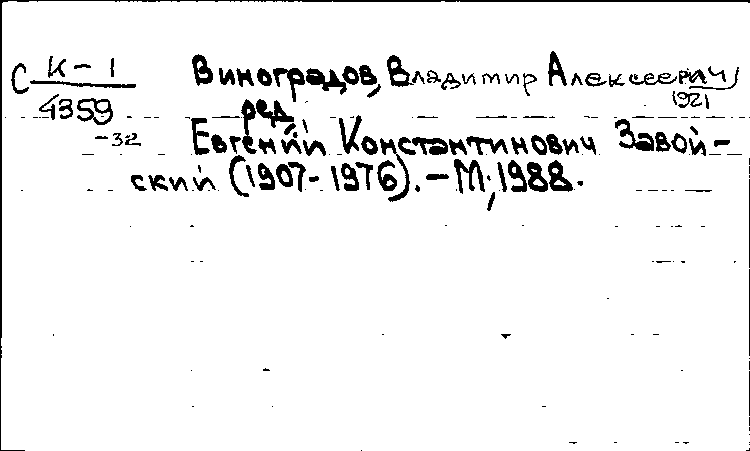 С К-1
4359
-32
Виноградов, Владимир Алексеевич,
1921
ред.
Евгений Константинович Завой-
ский (1907-1976). – М., 1988.